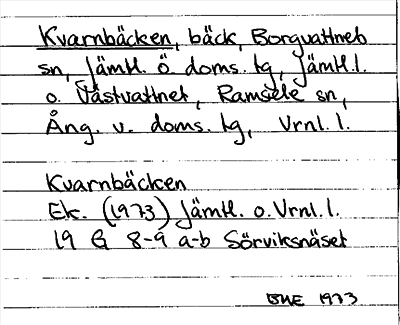 Kvarnbäcken, bäck, Borgvattnets
sn, Jämtl. Ö. doms. tg, Jämtl. l.
o. Västvattnet, Ramsele sn,
Ång. v. doms. tg, Vrnl. l.
Kvarnbäcken
Ek. (1973) Jämtl. o. Vrnl. l.
19 G 8-9 a-b Sörviksnäset
1973